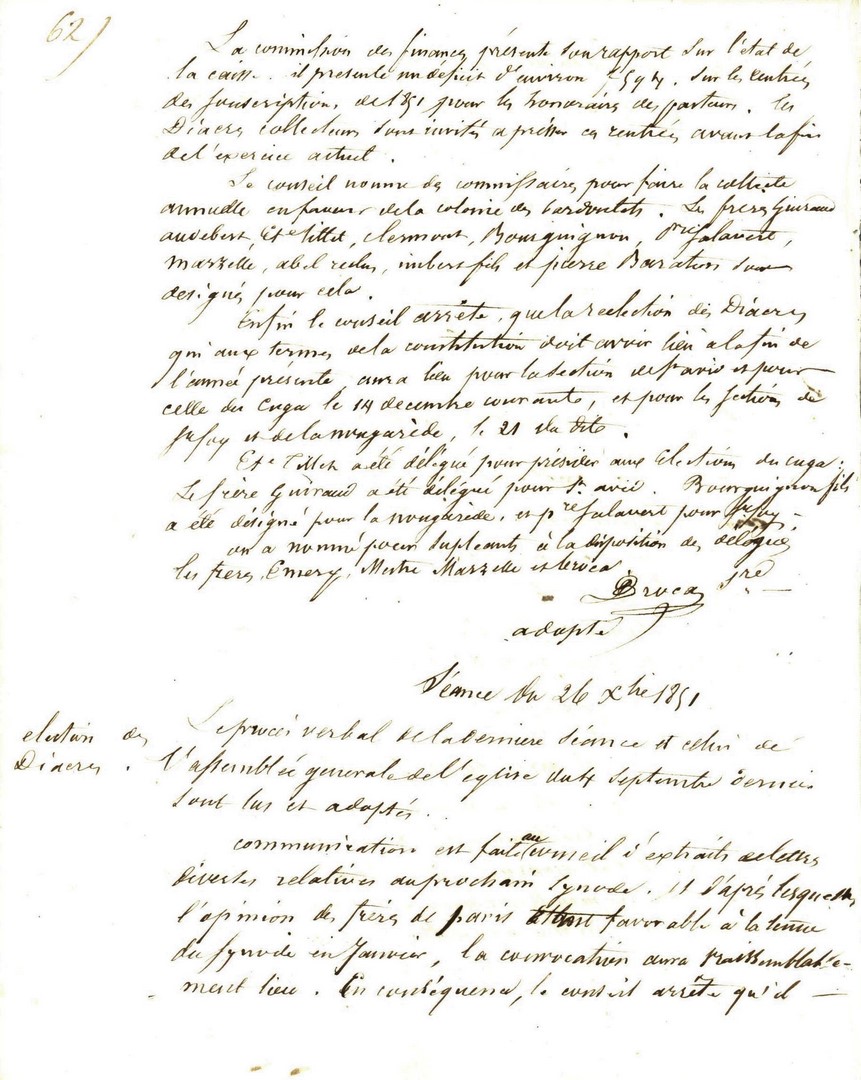 62)
La commission des finances présente son rapport sur l'état de
la caisse. il présente un déficit d'environ f. 594. sur les rentrées
des souscriptions de 1851 pour les honoraires des pasteurs. les
Diacres collecteurs sont invités a presser ces rentrées avant la fin
de l'exercice actuel.
Le conseil nomme des commissaires pour faire la collecte
annuelle en faveur de la colonie des bardoulets. Les frères Guiraud
audebert, Et.e tillet, clermont, Bourguignon, p.re salavert,
Marzelle, abel reclus, imbert fils et pierre Baraton sont
designés pour cela.
Enfin le conseil arrête, que la reelection des Diacres
qui aux termes de la constitution doit avoir lieu a la fin de
l'année présente, aura lieu pour la section de S.t avid et pour
celle du Cuga le 14 decembre courante, et pour les sections de
S.te foy et de la nougarède, le 21 du dit.
Et.e Tillet a été délégué pour présider aux Elections du cuga.
Le frère Guiraud a été délégué pour S.t avid. Bourguignon fils
a été designé pour la nougarède, et p.re salavert pour S.te foy.
on a nommé pour supleants à la disposition des délégués
les freres, Emery, Mestre Marzelle et broca
Broca S.re
adopté
Séance du 26 Xbre 1851
election des
Diacres.
Le procès verbal de la derniere séance et celui de
l'assemblée generale de l'eglise du 4 septembre dernier
sont lus et adoptés.
communication est faite au conseil d'extraits de lettres
diverses relatives au prochain synode. et d'après lesquelles
l'opinion des frères de paris favorable à la tenue
du synode en Janvier, la convocation aura vraissemblable-
ment lieu. En conséquence, le conseil arrête qu'il